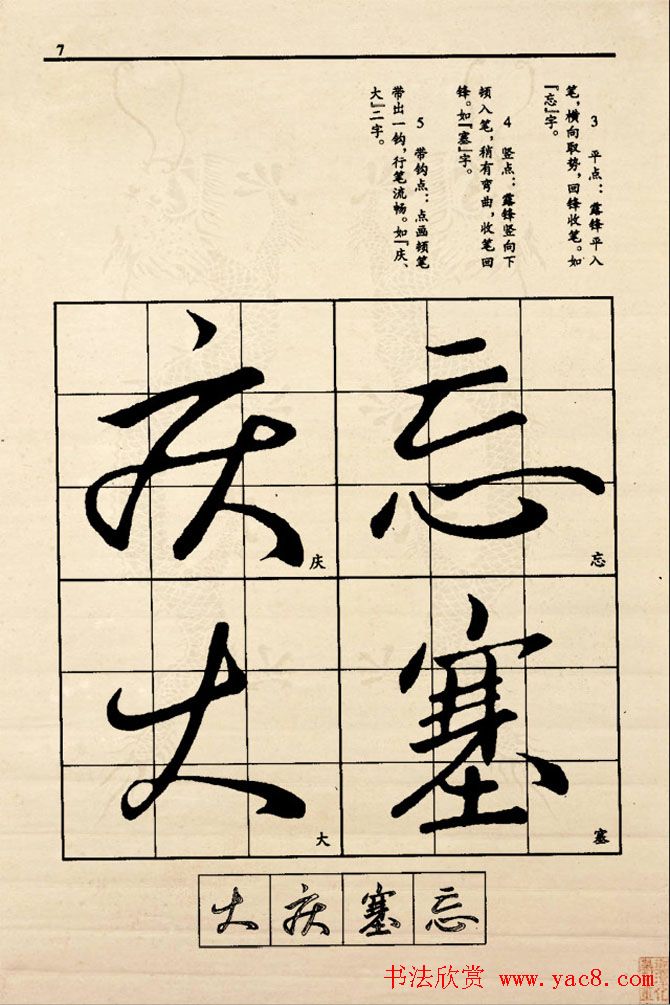 7
3 平点：露锋平入
笔，横向取势，回锋收笔。如
『忘』字。
4 竖点：露锋竖向下
顿入笔，稍有弯曲，收笔回
锋。如『塞』字。
5 带钩点：点画顿笔
带出一钩，行笔流畅。如『庆、
大』二字。
忘
忘
塞
塞
庆
庆
大
大
大 庆 塞 忘
书法欣赏 www.yac8.com